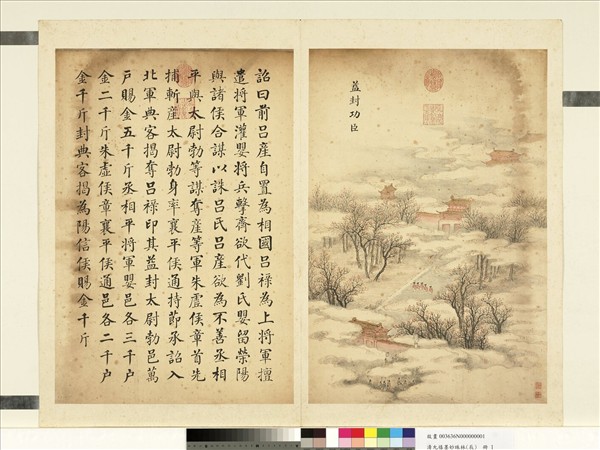 益封功臣
詔曰前呂產自置為相國呂祿為上將軍擅
遣將軍灌嬰將兵擊齊欲代劉氏嬰留榮陽
與諸侯合謀以誅呂氏呂產欲為不善丞相
平與太尉勃等謀奪產等軍朱虛侯章首先
捕斬產太尉勃身率襄平侯通持節承詔入
北軍典客揭奪呂祿印其益封太尉勃邑萬
戶賜金五千斤丞相平將軍嬰邑各三千戶
金二千斤朱虛侯章襄平侯通邑各二千戶
金千斤封典客揭為陽信侯賜金千斤
故畫 003636N000000001